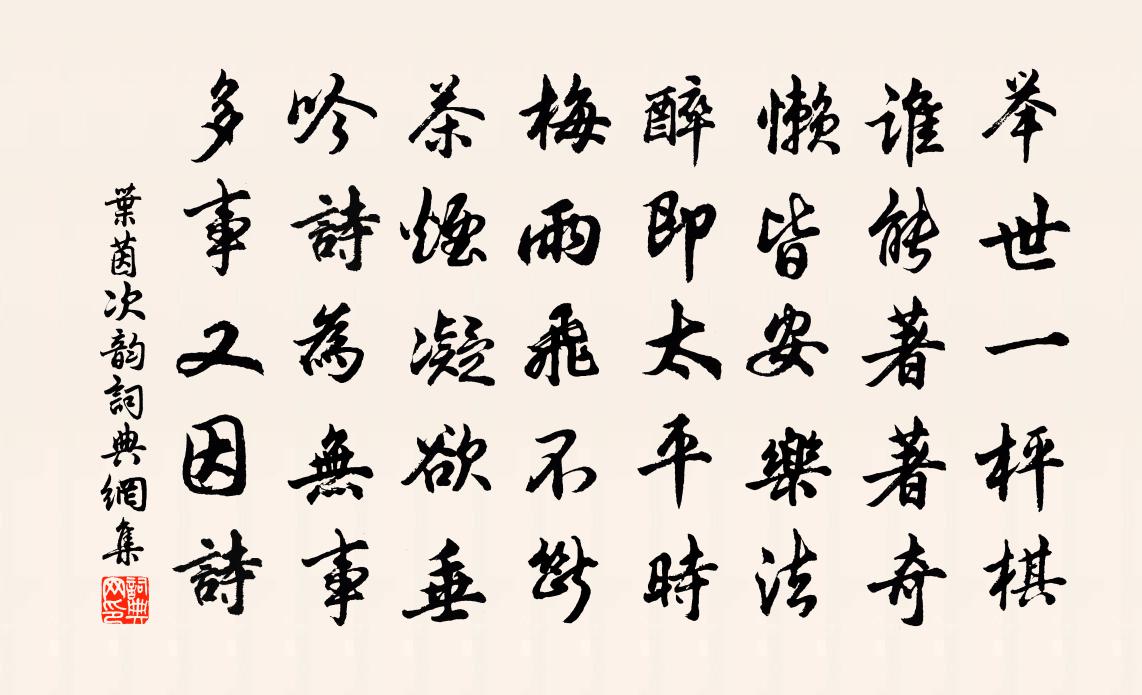 举世一枰棋
谁能著著奇
懒皆安樂法
醉即太平時
梅雨飛不断
茶煙凝欲垂
吟詩為無事
多事又因詩
葉茵次韵詞典網集
詞典網印